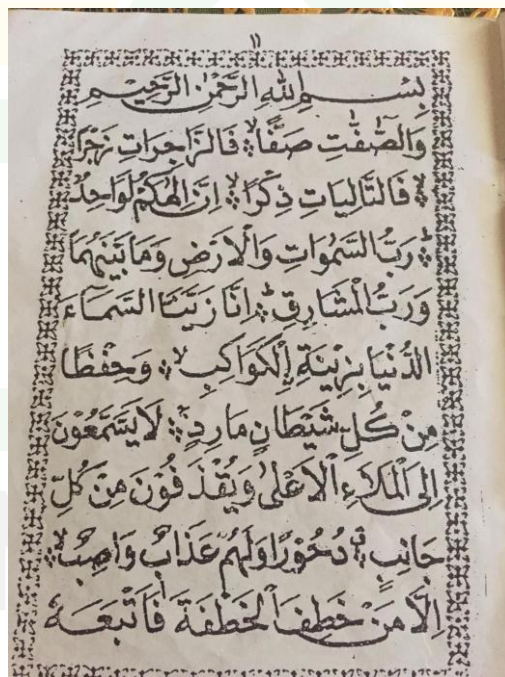 ١١
بِسْمِ اللّٰهِ الرَّحْمٰنِ الرَّحِيْمِ
وَالصّٰٓفّٰتِ صَفًّا ۙ فَالزَّاجِرَاتِ زَجْرًا
ۙ فَالتَّالِيَاتِ ذِكْرًا ۙ اِنَّ اِلٰهَكُمْ لَوَاحِدٌ
ؕ رَبُّ السَّمٰوَاتِ وَالْاَرْضِ وَمَا بَيْنَهُمَا
وَرَبُّ الْمَشَارِقِ ؕ اِنَّا زَيَّنَّا السَّمَآءَ
الدُّنْيَا بِزِيْنَةِ ِۨالْكَوَاكِبِ ۙ وَحِفْظًا
مِنْ كُلِّ شَيْطَانٍ مَارِدٍ ۚ لَا يَسَّمَّعُوْنَ
اِلَى الْمَلَاءِ الْاَعْلٰى وَيُقْذَفُوْنَ مِنْ كُلِّ
جَانِبٍ ۗ دُحُوْرًا وَلَهُمْ عَذَابٌ وَاصِبٌ ۙ
اِلَّا مَنْ خَطِفَ الْخَطْفَةَ فَاَتْبَعَهٗ